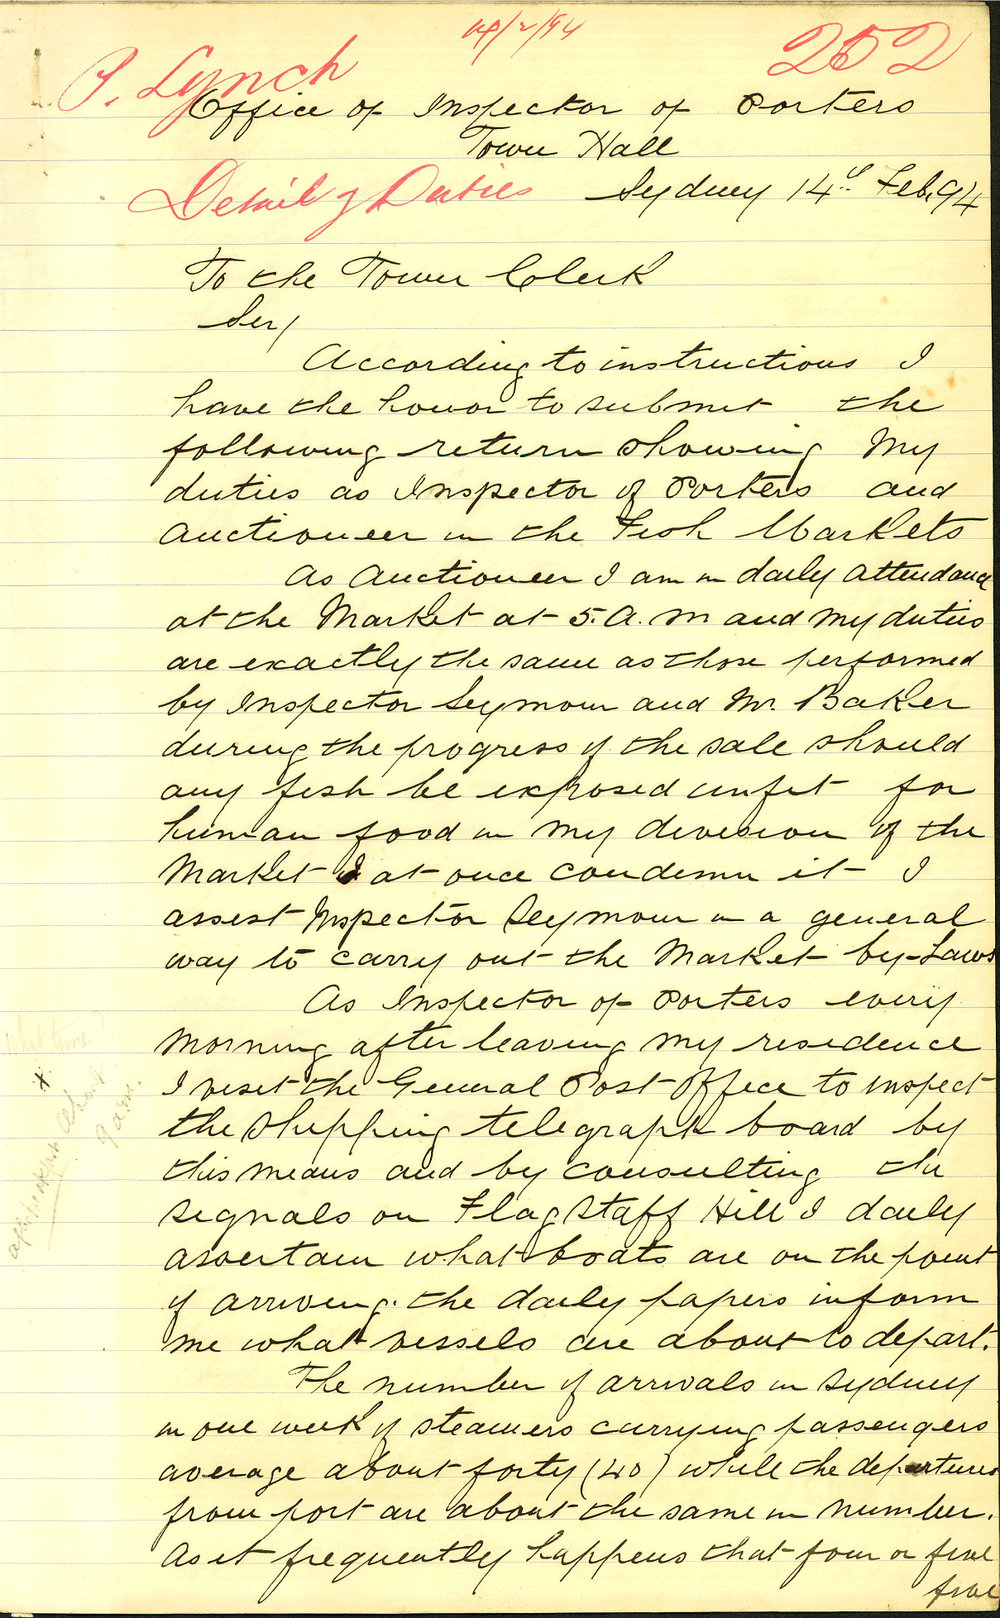 14/2/94
252
P. Lynch
Office of Inspector of Porters
Town Hall
Detail of Duties
Sydney 14th Feb. 94
To the Town Clerk
Sir/
According to instructions I
have the honor to submit the
following return showing My
duties as Inspector of Porters and
Auctioneer in the Fish Markets
As Auctioneer I am in daily attendance
at the Market at 5. a. m and my duties
are exactly the same as those performed
by Inspector Seymour and Mr. Baker
during the progress of the sale should
any fish be exposed unfit for
human food in my division of the
Market I at once condemn it I
assist Inspector Seymour in a general
way to carry out the Market by-Laws
As Inspector of Porters every
morning after leaving my residence
I visit the General Post Office to inspect
the shipping telegraph board by
this means and by consulting the
signals on Flag Staff Hill I daily
ascertain what boats are on the point
of arriving. the daily papers inform
me what vessels are about to depart.
The number of arrivals in Sydney
in one week of steamers carrying passengers
average about forty (40) while the departures
from port are about the same in number.
As it frequently happens that four or five
five
What time
x
about
9 a.m.